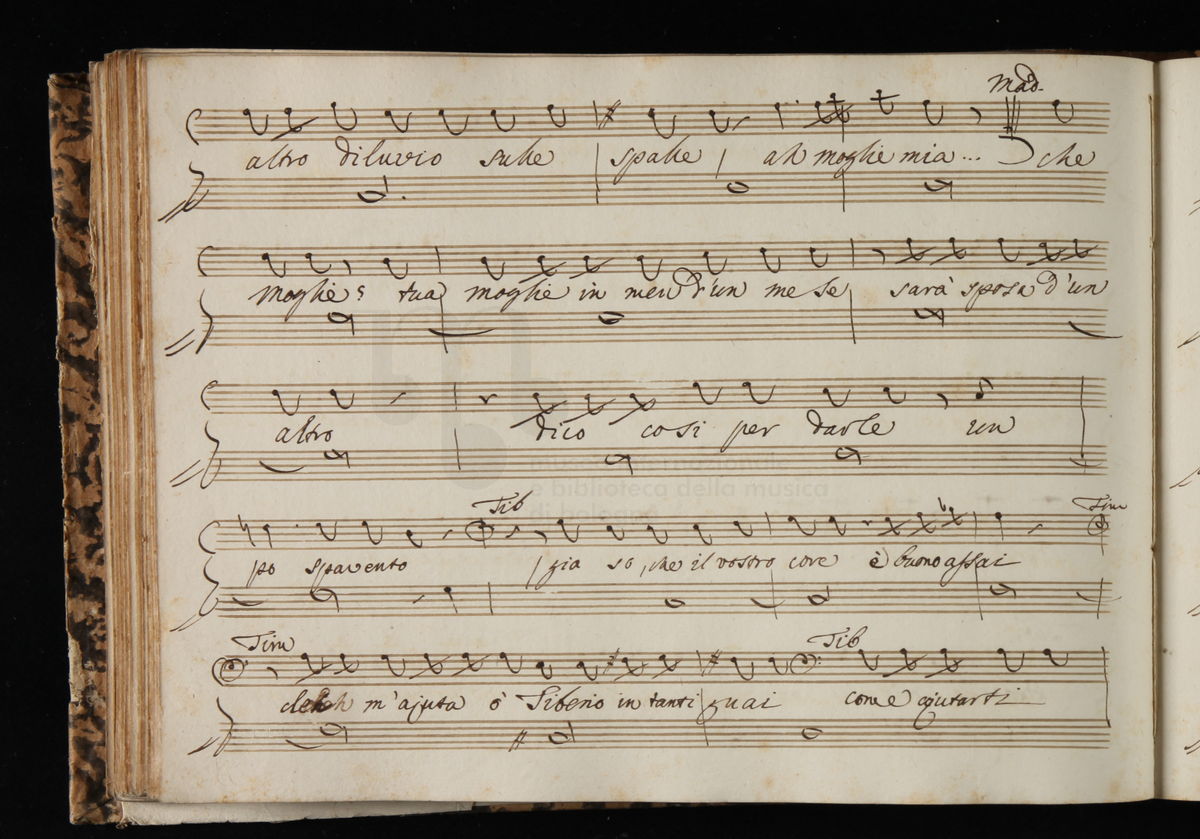 Mad.
altro diluvio sulle spalle / ah moglie mia... che
moglie? tua moglie in men d'un mese sarà sposa d'un
altro dico così per darle un
Tib Tim
po spavento / gia so, che il vostro core è buono assai
Tim Tib
m'ajuta ò Tiberio in tanti guai come ajutarti
museo internazionale
e biblioteca della musica
di bologna